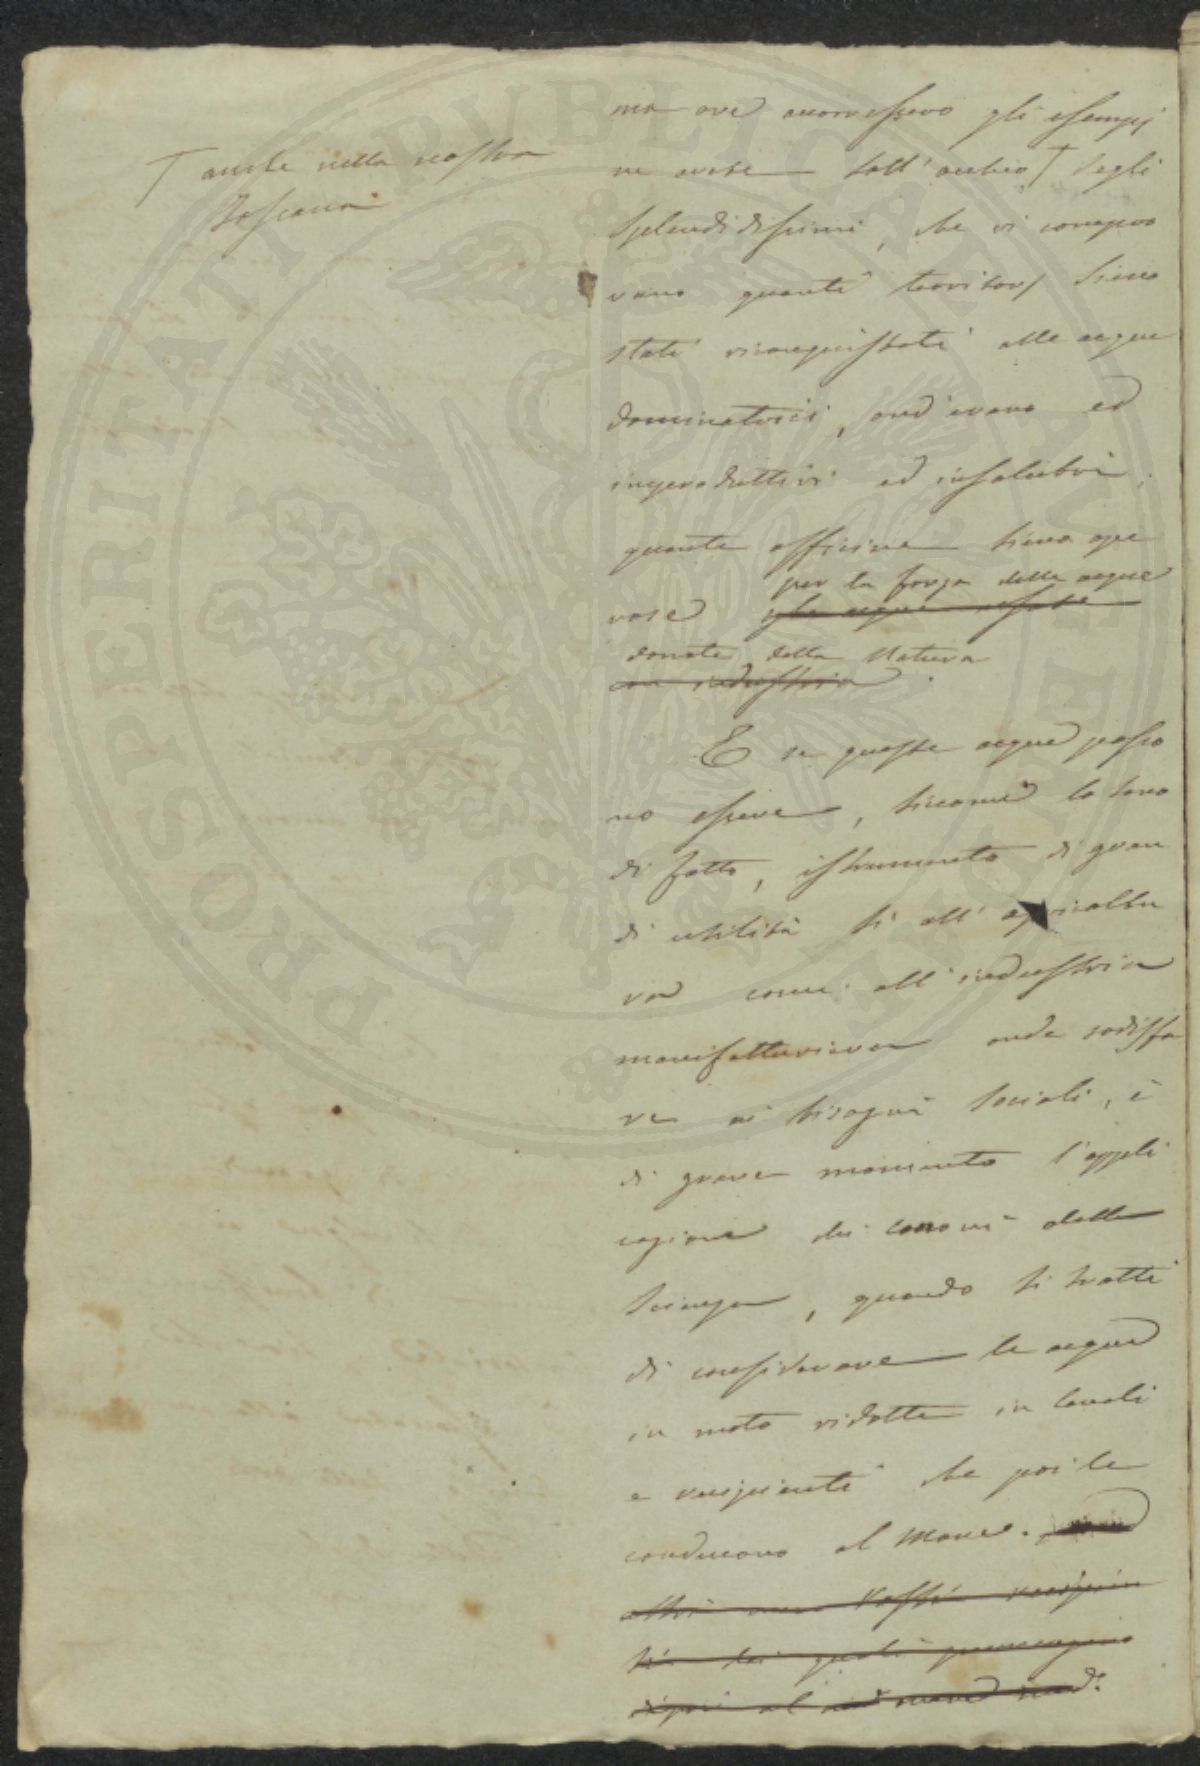 PROSPERITATI PUBLICAE AUGENDAE
T anche nella nostra
Toscana
ma ove occorressero gli esempj
ne avete sott'occhio T degli
splendidissimi, che vi compro
vano quanti territorj sieno
stati riconquistati alle acque
dominatrici, ond'erano ed
improduttivi ed insalubri,
quante officine sieno ope
per la forza delle acque
rose
donate dalla Natura
con industria.
E se queste acque posso
no essere, siccome lo sono
di fatto, istrumento di gran
di utilità sì all'agricoltu
ra come all'industria
manifatturiera onde sodisfa
re ai bisogni sociali, è
di grave momento l'appli
cazione dei canoni della
Scienza, quando si tratti
di considerare le acque
in moto ridotte in canali
e recipienti che poi le
conducono al mare.
altri più vasti recipien
ti dai quali
dipoi al mare